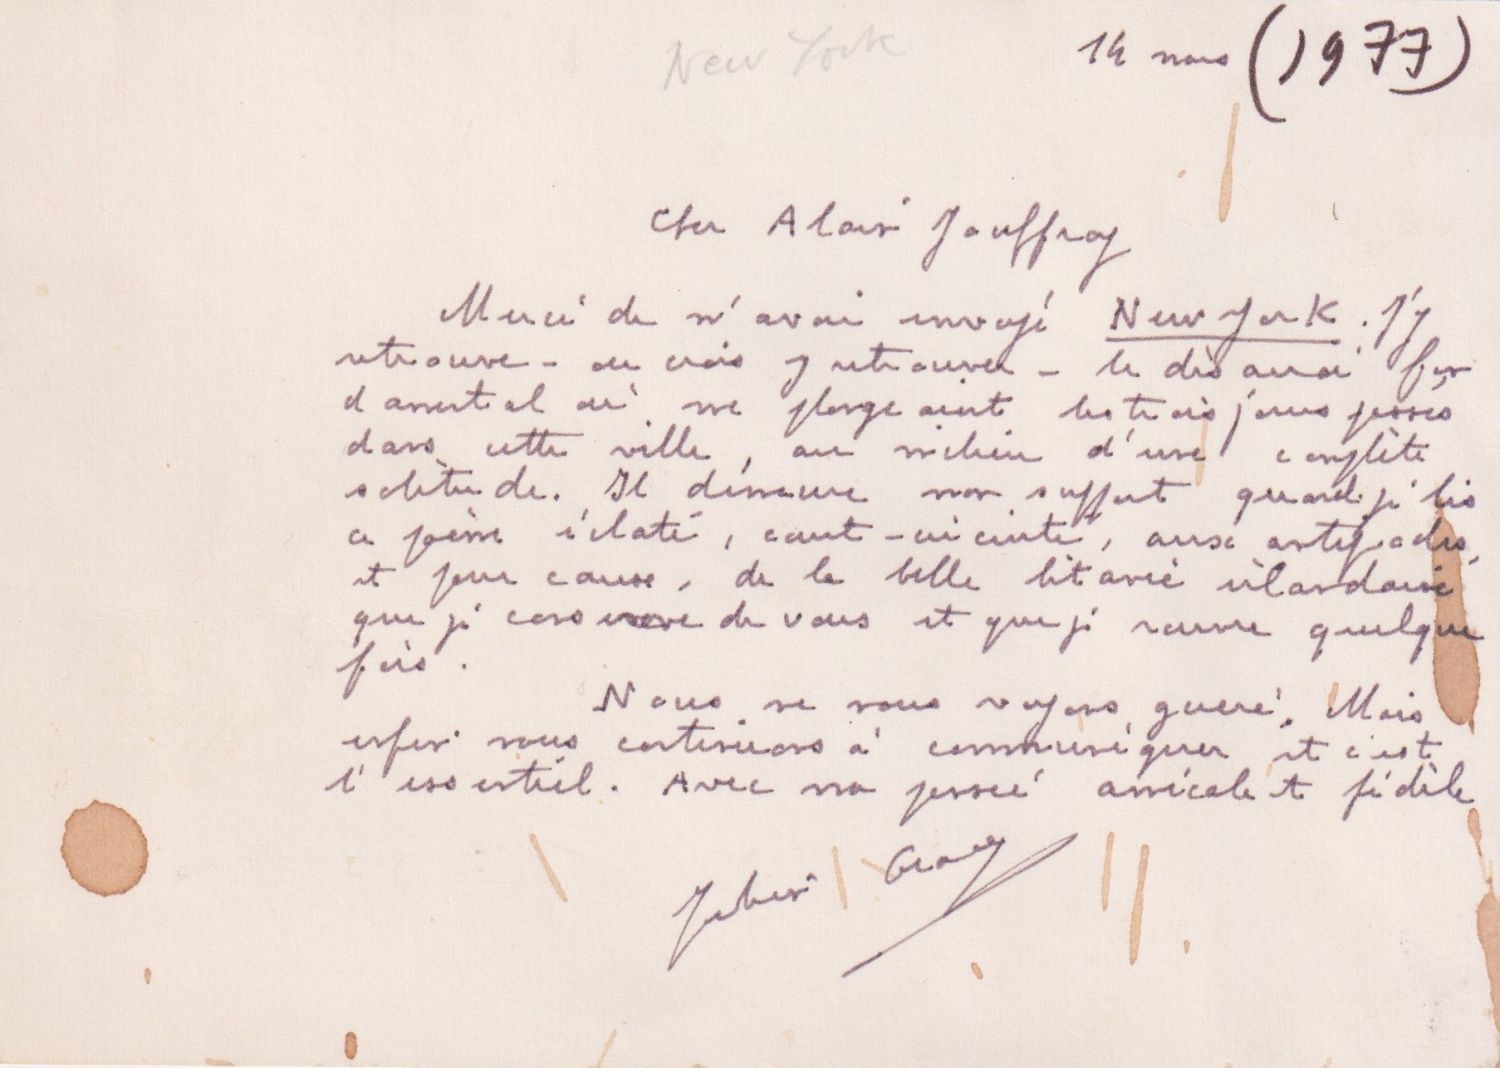 New York
14 mars (1977)
Cher Alain Jouffroy
Merci de m'avoir envoyé New York. J'y
retrouve - ou crois y retrouver - le désarroi
d'arsenal où me plongeaient les trois jours passés
dans cette ville, au milieu d'une complète
solitude. Il demeure mon support quand je lis
ce poème éclaté, court-circuité, aux antipodes,
et pour cause, de la belle litanie irlandaise
que je conserve de vous et que je rouvre quelque
fois.
Nous ne nous voyons guère. Mais
enfin nous continuons à communiquer et c'est
l'essentiel. Avec ma pensée amicale et fidèle
Julien Gracq